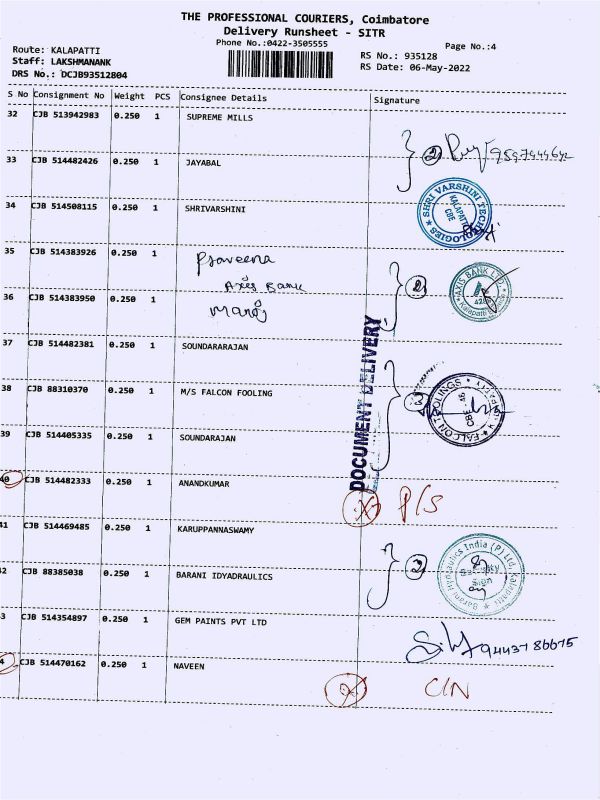 THE PROFESSIONAL COURIERS, Coimbatore
Delivery Runsheet - SITR
Phone No.:0422-3505555
Page No.:4
Route: KALAPATTI
Staff: LAKSHMANANK
DRS No.: DCJB93512804
RS No.: 935128
RS Date: 06-May-2022
S No Consignment No Weight PCS Consignee Details Signature
32 CJB 513942983 0.250 1 SUPREME MILLS
33 CJB 514482426 0.250 1 JAYABAL
2
34 CJB 514508115 0.250 1 SHRIVARSHINI
SHRI VARSHINI TECHNOLOGIES
KALAPATTI
CBE
35 CJB 514383926 0.250 1 Praveena
Axis Bank
36 CJB 514383950 0.250 1 Manoj
2
AXIS BANK LTD
Kalapatti Branch
37 CJB 514482381 0.250 1 SOUNDARARAJAN
38 CJB 88310370 0.250 1 M/S FALCON FOOLING
3
FALCON TOOLINGS
CBE
DOCUMENT DELIVERY
39 CJB 514405335 0.250 1 SOUNDARAJAN
40 CJB 514482333 0.250 1 ANANDKUMAR
P/S
41 CJB 514469485 0.250 1 KARUPPANNASWAMY
42 CJB 88385038 0.250 1 BARANI IDYADRAULICS
2
Barani Hydraulics India (P) Ltd, Kalapatti
Security
Sign
3 CJB 514354897 0.250 1 GEM PAINTS PVT LTD
4 CJB 514470162 0.250 1 NAVEEN
C/N